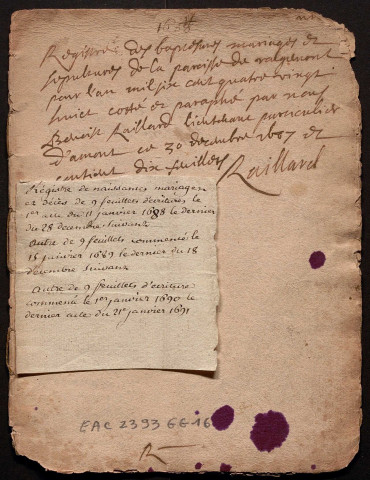 1688
Registre des baptesmes mariages et
sepultures de la paroisse de
pour l'an mil six cent quatre vingt
huict cotté et paraphé par nous
Benoist Raillard lieutenant particulier
d'amont ce 30 decembre 1687 et
contient dix feuillets Raillard
Registre de naissances mariages
et décès de 9 feuillets d'écritures le
1er acte du 11 janvier 1688 le dernier
du 28 decembre suivant
Autre de 9 feuillets commencé le
15 janvier 1689 le dernier du 18
décembre suivant
Autre de 9 feuillets d'écriture
commencé le 1er janvier 1690 le
dernier acte du 21e janvier 1691
EAC 2393 GG 16